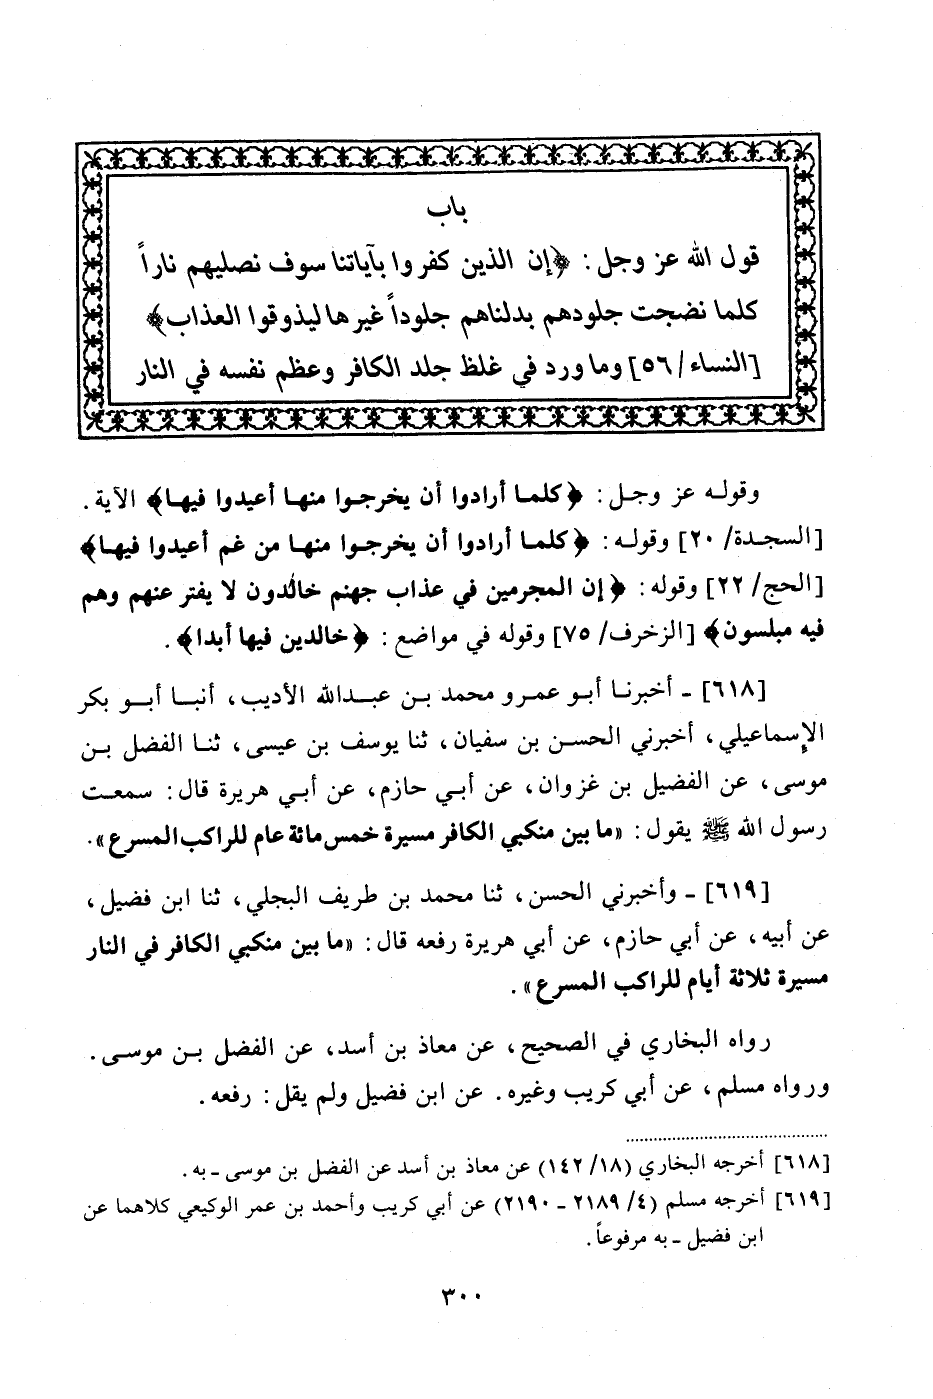 باب
قول الله عز وجل : ﴿إن الذين كفروا بآياتنا سوف نصليهم ناراً
كلما نضجت جلودهم بدلناهم جلوداً غيرها ليذوقوا العذاب﴾
[النساء / ٥٦] وما ورد في غلظ جلد الكافر وعظم نفسه في النار
وقوله عز وجل : ﴿كلما أرادوا أن يخرجوا منها أعيدوا فيها﴾ الآية .
[السجدة/ ٢٠] وقوله : ﴿كلما أرادوا أن يخرجوا منها من غم أعيدوا فيها﴾
[الحج/ ٢٢] وقوله : ﴿إن المجرمين في عذاب جهنم خالدون لا يفتر عنهم وهم
فيه مبلسون﴾ [الزخرف/ ٧٥] وقوله في مواضع : ﴿خالدين فيها أبدا﴾ .
[٦١٨] ـ أخبرنا أبو عمرو محمد بن عبدالله الأديب ، أنبا أبو بكر
الإسماعيلي ، أخبرني الحسن بن سفيان ، ثنا يوسف بن عيسى ، ثنا الفضل بن
موسى ، عن الفضيل بن غزوان ، عن أبي حازم ، عن أبي هريرة قال : سمعت
رسول الله ﷺ يقول : «ما بين منكبي الكافر مسيرة خمس مائة عام للراكب المسرع» .
[٦١٩] ـ وأخبرني الحسن ، ثنا محمد بن طريف البجلي ، ثنا ابن فضيل ،
عن أبيه ، عن أبي حازم ، عن أبي هريرة رفعه قال : «ما بين منكبي الكافر في النار
مسيرة ثلاثة أيام للراكب المسرع» .
رواه البخاري في الصحيح ، عن معاذ بن أسد ، عن الفضل بن موسى .
ورواه مسلم ، عن أبي كريب وغيره . عن ابن فضيل ولم يقل : رفعه .
[٦١٨] أخرجه البخاري (١٨/ ١٤٢) عن معاذ بن أسد عن الفضل بن موسى ـ به .
[٦١٩] أخرجه مسلم (٤/ ٢١٨٩ ـ ٢١٩٠) عن أبي كريب وأحمد بن عمر الوكيعي كلاهما عن
ابن فضيل ـ به مرفوعاً .
٣٠٠